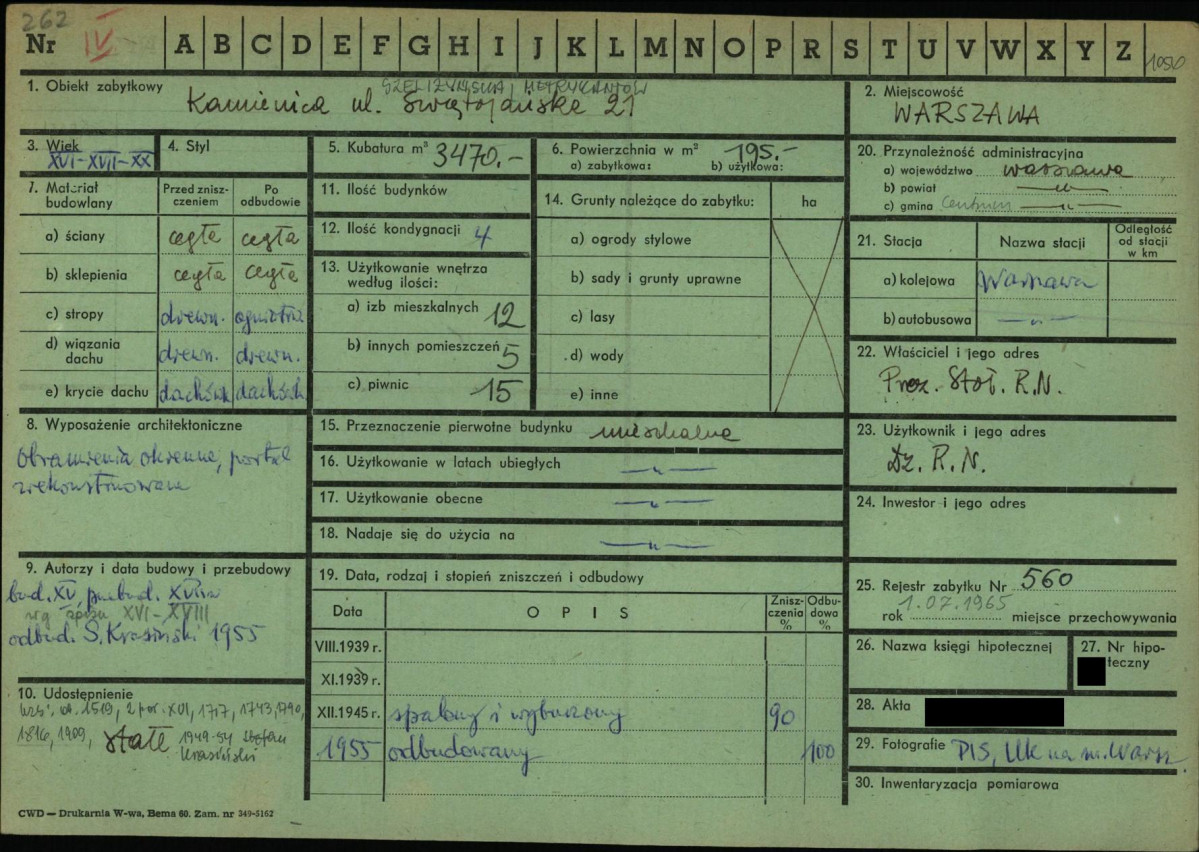 262
Nr IV A B C D E F G H I J K L M N O P R S T U V W X Y Z 1050
1. Obiekt zabytkowy
METRYKANTÓW
Kamienica ul. Świętojańska 21
2. Miejscowość
WARSZAWA
3. Wiek
XVI-XVII-XX
4. Styl
5. Kubatura m³ 3470.-
6. Powierzchnia w m² 195.-
a) zabytkowa: b) użytkowa:
20. Przynależność administracyjna
a) województwo warszawa
b) powiat —„—
c) gmina Centrum —„—
7. Materiał budowlany
Przed zniszczeniem
Po odbudowie
a) ściany cegła cegła
b) sklepienia cegła cegła
c) stropy drewn. ogniotrw.
d) wiązania dachu drewn. drewn.
e) krycie dachu dachówk dachówk
11. Ilość budynków
12. Ilość kondygnacji 4
13. Użytkowanie wnętrza
według ilości:
a) izb mieszkalnych 12
b) innych pomieszczeń 5
c) piwnic 15
14. Grunty należące do zabytku: ha
a) ogrody stylowe
b) sady i grunty uprawne
c) lasy
d) wody
e) inne
21. Stacja
Nazwa stacji
Odległość
od stacji
w km
a) kolejowa Warszawa
b) autobusowa —„—
22. Właściciel i jego adres
Prez. Stoł. R.N.
8. Wyposażenie architektoniczne
Obramienia okienne, portal
zrekonstruowane
15. Przeznaczenie pierwotne budynku mieszkalne
16. Użytkowanie w latach ubiegłych —„—
17. Użytkowanie obecne —„—
18. Nadaje się do użycia na —„—
23. Użytkownik i jego adres
Dz. R.N.
24. Inwestor i jego adres
9. Autorzy i data budowy i przebudowy
bud. XV, przebud. XVII w
wg spisu XVI-XVIII
odbud. S. Krasiński 1955
19. Data, rodzaj i stopień zniszczeń i odbudowy
Data
O P I S
Zniszczenia %
Odbudowa %
VIII.1939 r.
XI.1939 r.
XII.1945 r. spalony i wyburzony 90
1955 odbudowany 100
25. Rejestr zabytku Nr 560
1.07.1965
rok miejsce przechowywania
26. Nazwa księgi hipotecznej
27. Nr hipoteczny
10. Udostępnienie
1519, 2 poł. XVI, 1717, 1743, 1790,
1816, 1909, stałe 1949-54 Stefan
Krasiński
28. Akta
29. Fotografie PIS, UK na m. Warsz.
30. Inwentaryzacja pomiarowa
CWD — Drukarnia W-wa, Bema 60. Zam. nr 349-5162